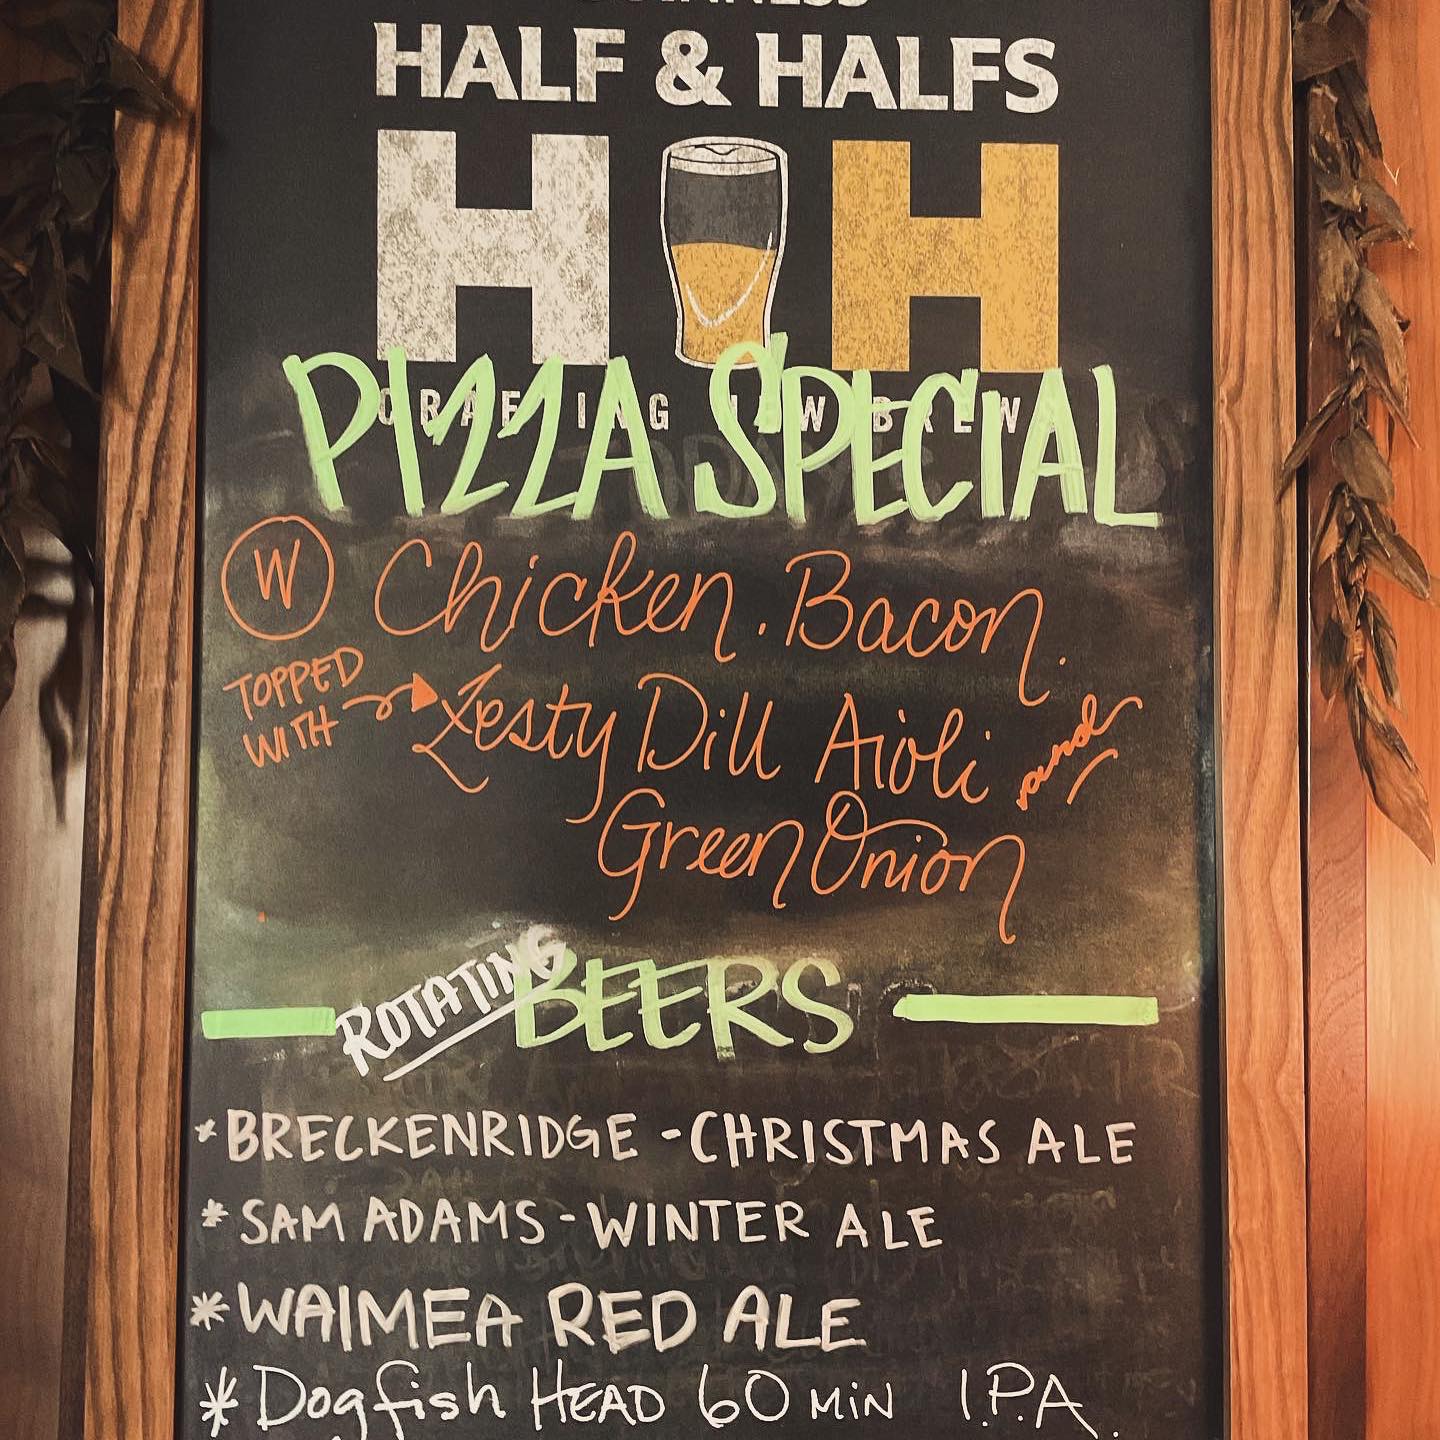 GUINNESS
HALF & HALFS
H H
CRAFTING BREW
PIZZA SPECIAL
W Chicken. Bacon.
TOPPED WITH Zesty Dill Aioli and
Green Onion
ROTATING BEERS
* BRECKENRIDGE - CHRISTMAS ALE
* SAM ADAMS - WINTER ALE
* WAIMEA RED ALE
* Dogfish HEAD 60 MIN I.P.A.